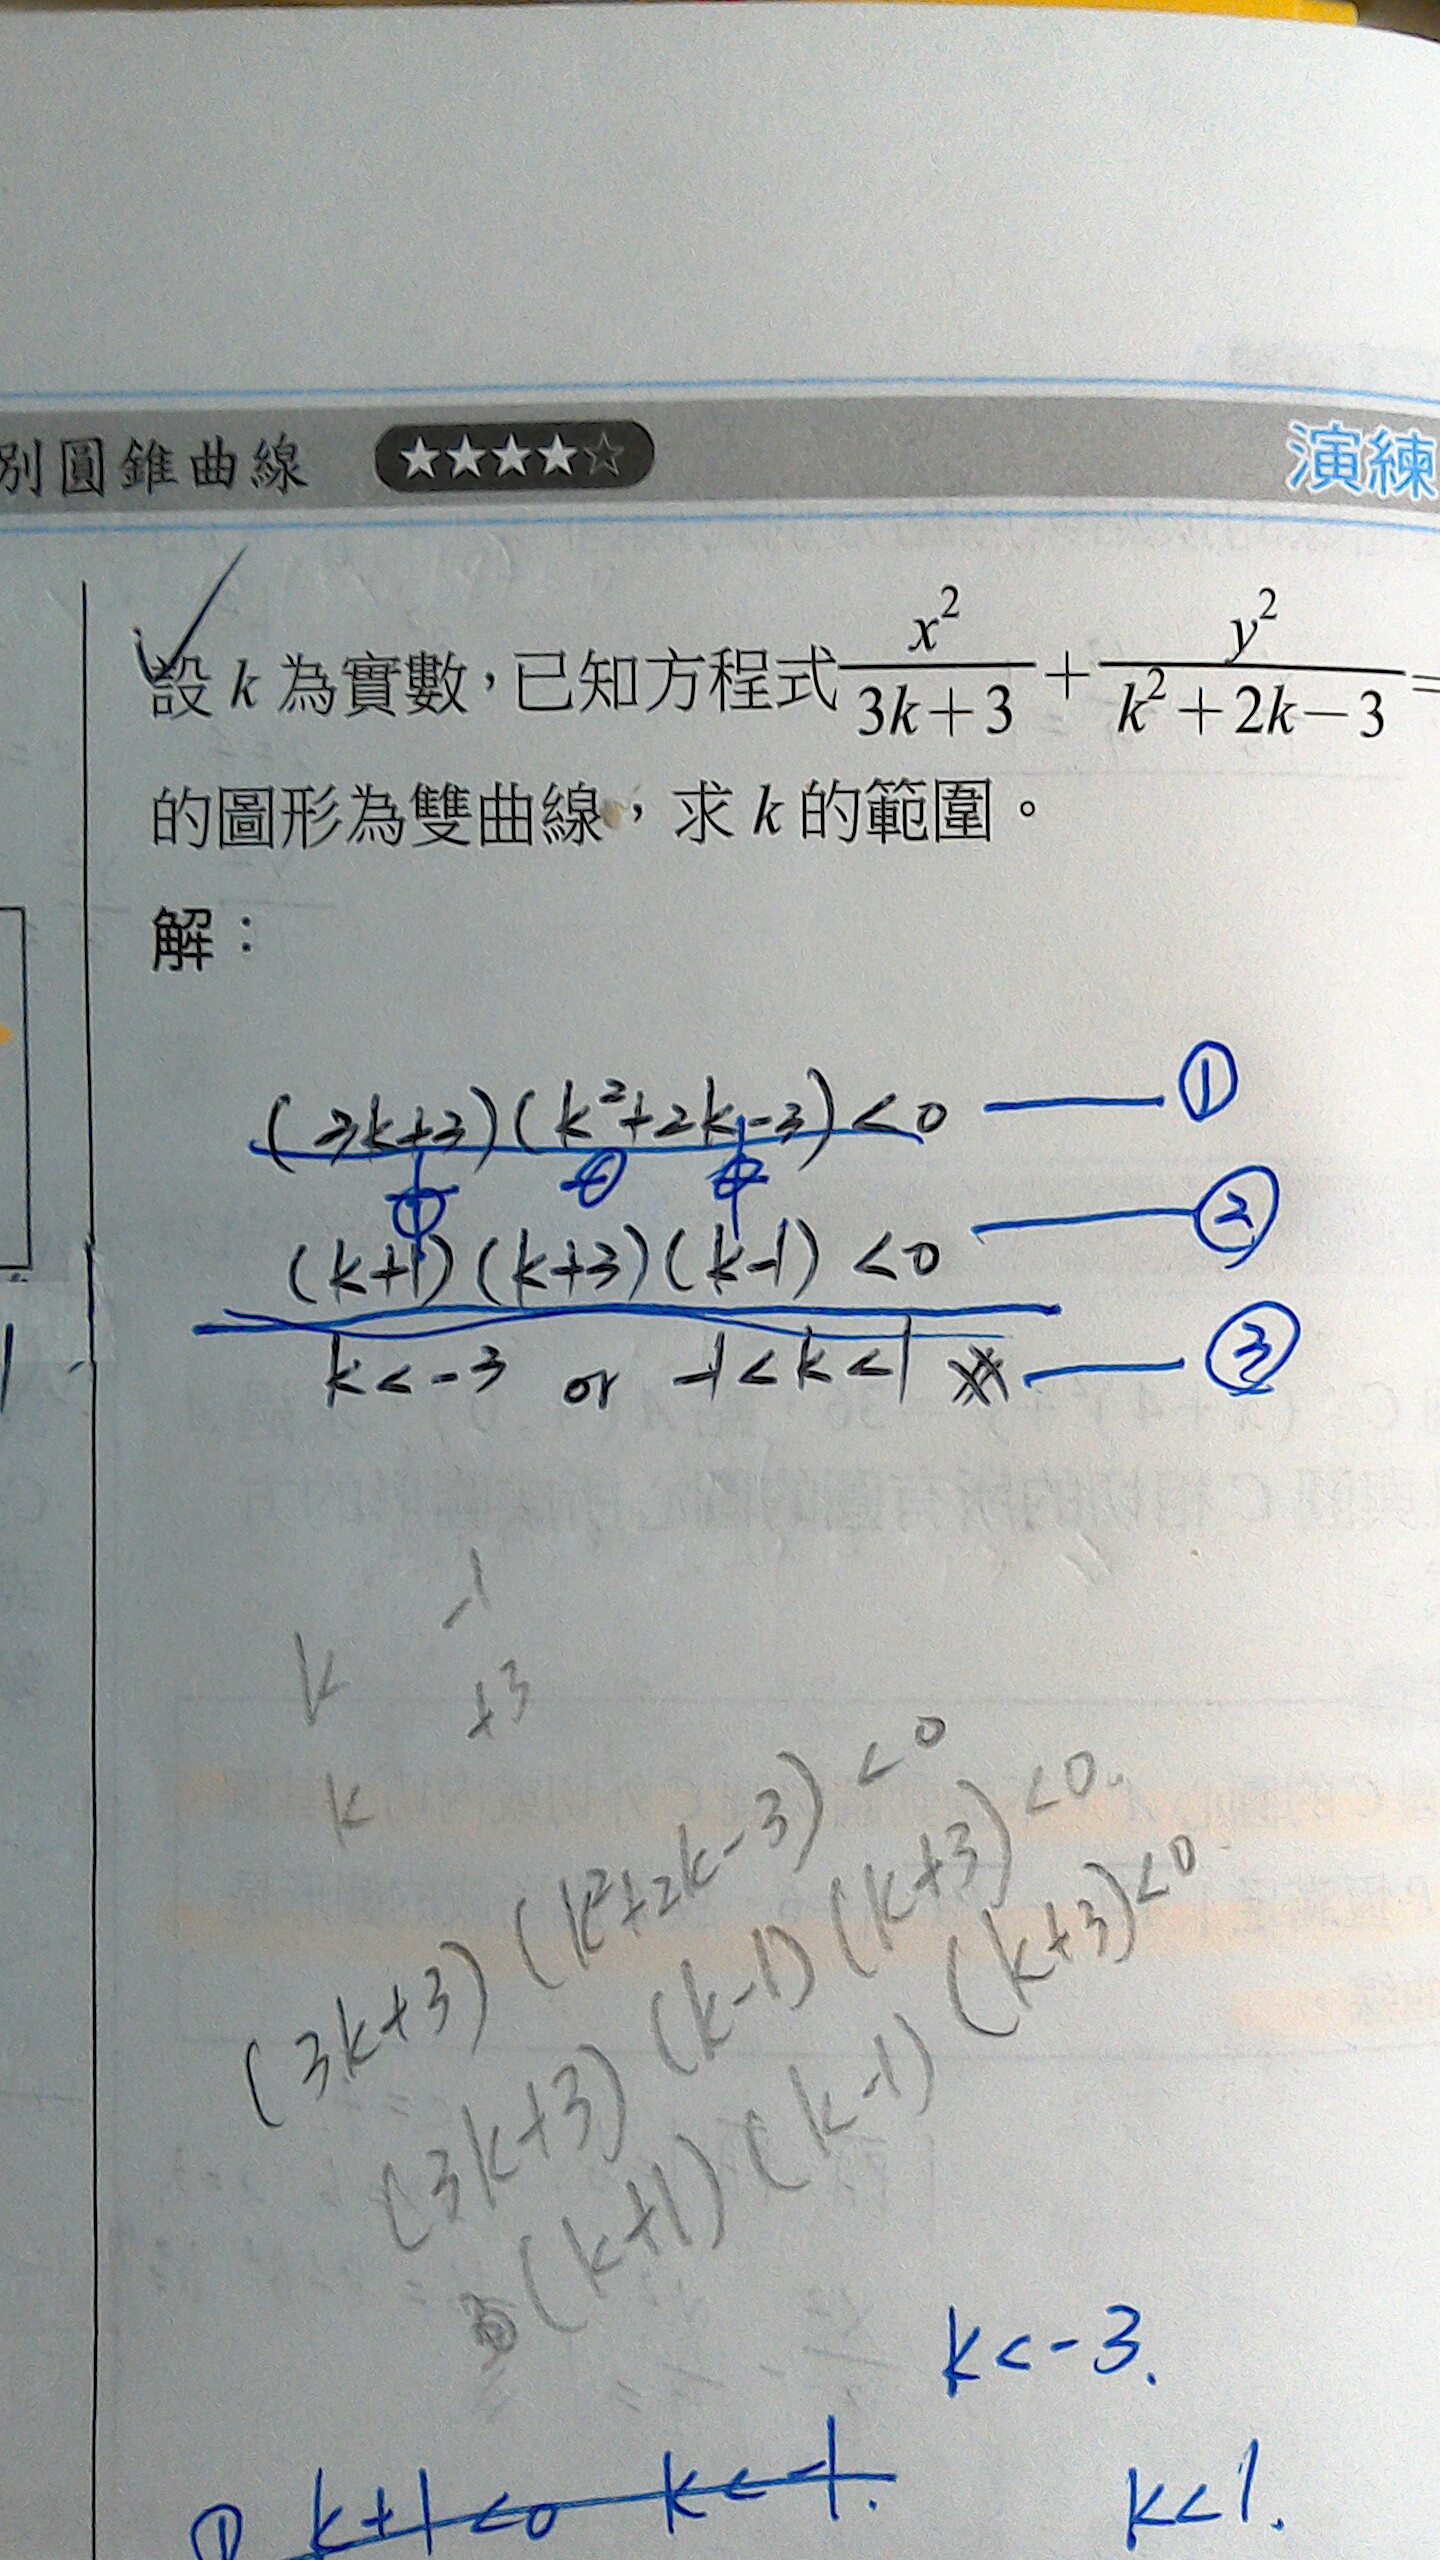 別圓錐曲線 ★★★★☆ 演練
設 k 為實數，已知方程式 x²/(3k+3) + y²/(k²+2k−3) =
的圖形為雙曲線，求 k 的範圍。
解：
(3k+3)(k²+2k-3)<0 ①
(k+1)(k+3)(k-1)<0 ②
k<-3 or -1<k<1 ③
k -1
+3
k
(3k+3)(k²+2k-3)<0
(3k+3)(k-1)(k+3)<0.
(k+1)(k-1)(k+3)<0
k<-3.
① k+1<0 k<-1. k<1.